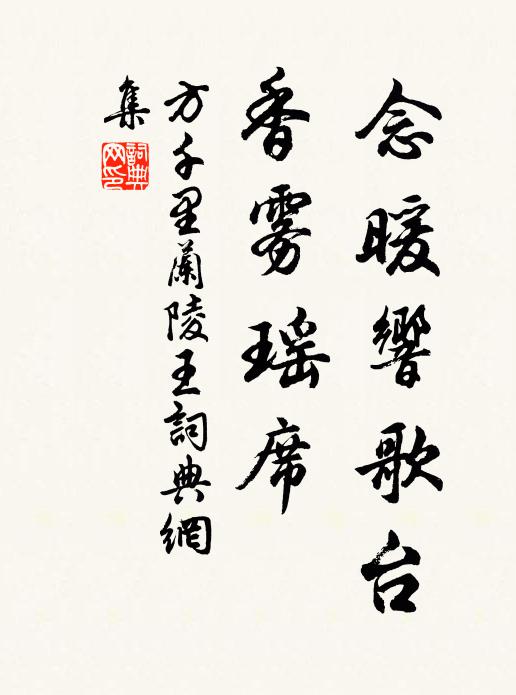 念暖響歌台
香雾瑶席
方千里蘭陵王詞典網
集
詞典
网印